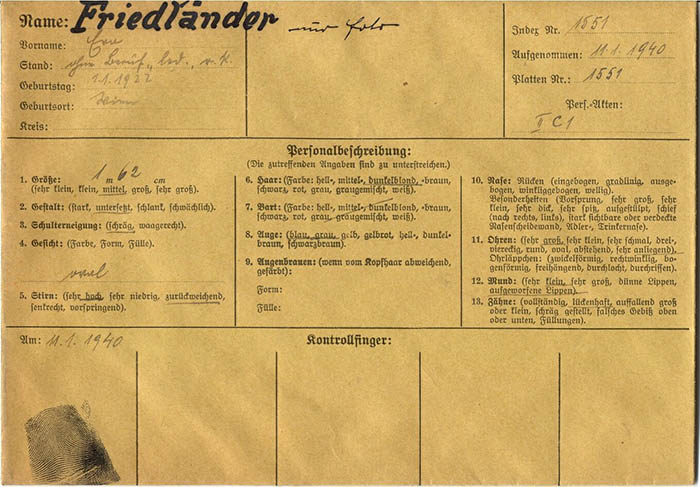 Name: Friedländer
nur Foto
Index Nr. 1551
Vorname: Eva
Aufgenommen: 11.1. 1940
Stand: ohne Beruf, led., r. k.
Platten Nr.: 1551
Geburtstag: 1.1.1922
Pers.-Akten:
Geburtsort: Wien
II C1
Kreis:
Personalbeschreibung:
(Die zutreffenden Angaben sind zu unterstreichen.)
1. Größe: 1 m 62 cm
(sehr klein, klein, mittel, groß, sehr groß).
2. Gestalt: (stark, untersetzt, schlank, schwächlich).
3. Schulterneigung: (schräg, waagerecht).
4. Gesicht: (Farbe, Form, Fülle).
oval
5. Stirn: (sehr hoch, sehr niedrig, zurückweichend,
senkrecht, vorspringend).
6. Haar: (Farbe: hell-, mittel-, dunkelblond, -braun,
schwarz, rot, grau, graugemischt, weiß).
7. Bart: (Farbe: hell-, mittel-, dunkelblond, -braun,
schwarz, rot, grau, graugemischt, weiß).
8. Auge: (blau, grau, gelb, gelbrot, hell-, dunkel-
braun, schwarzbraun).
9. Augenbrauen: (wenn vom Kopfhaar abweichend,
gefärbt):
Form:
Fülle:
10. Nase: Rücken (eingebogen, gradlinig, ausge-
bogen, winkliggebogen, wellig).
Besonderheiten (Vorsprung, sehr groß, sehr
klein, sehr dick, sehr spitz, aufgestülpt, schief
(nach rechts, links), stark sichtbare oder verdeckte
Nasenscheidewand, Adler-, Trinkernase).
11. Ohren: (sehr groß, sehr klein, sehr schmal, drei-,
viereckig, rund, oval, abstehend, sehr anliegend).
Ohrläppchen: (zwickelförmig, rechtwinklig, bo-
genförmig, freihängend, durchlocht, durchrissen).
12. Mund: (sehr klein, sehr groß, dünne Lippen,
aufgeworfene Lippen).
13. Zähne: (vollständig, lückenhaft, auffallend groß
oder klein, schräg gestellt, falsches Gebiß oben
oder unten, Füllungen).
Am: 11.1. 1940
Kontrollfinger: